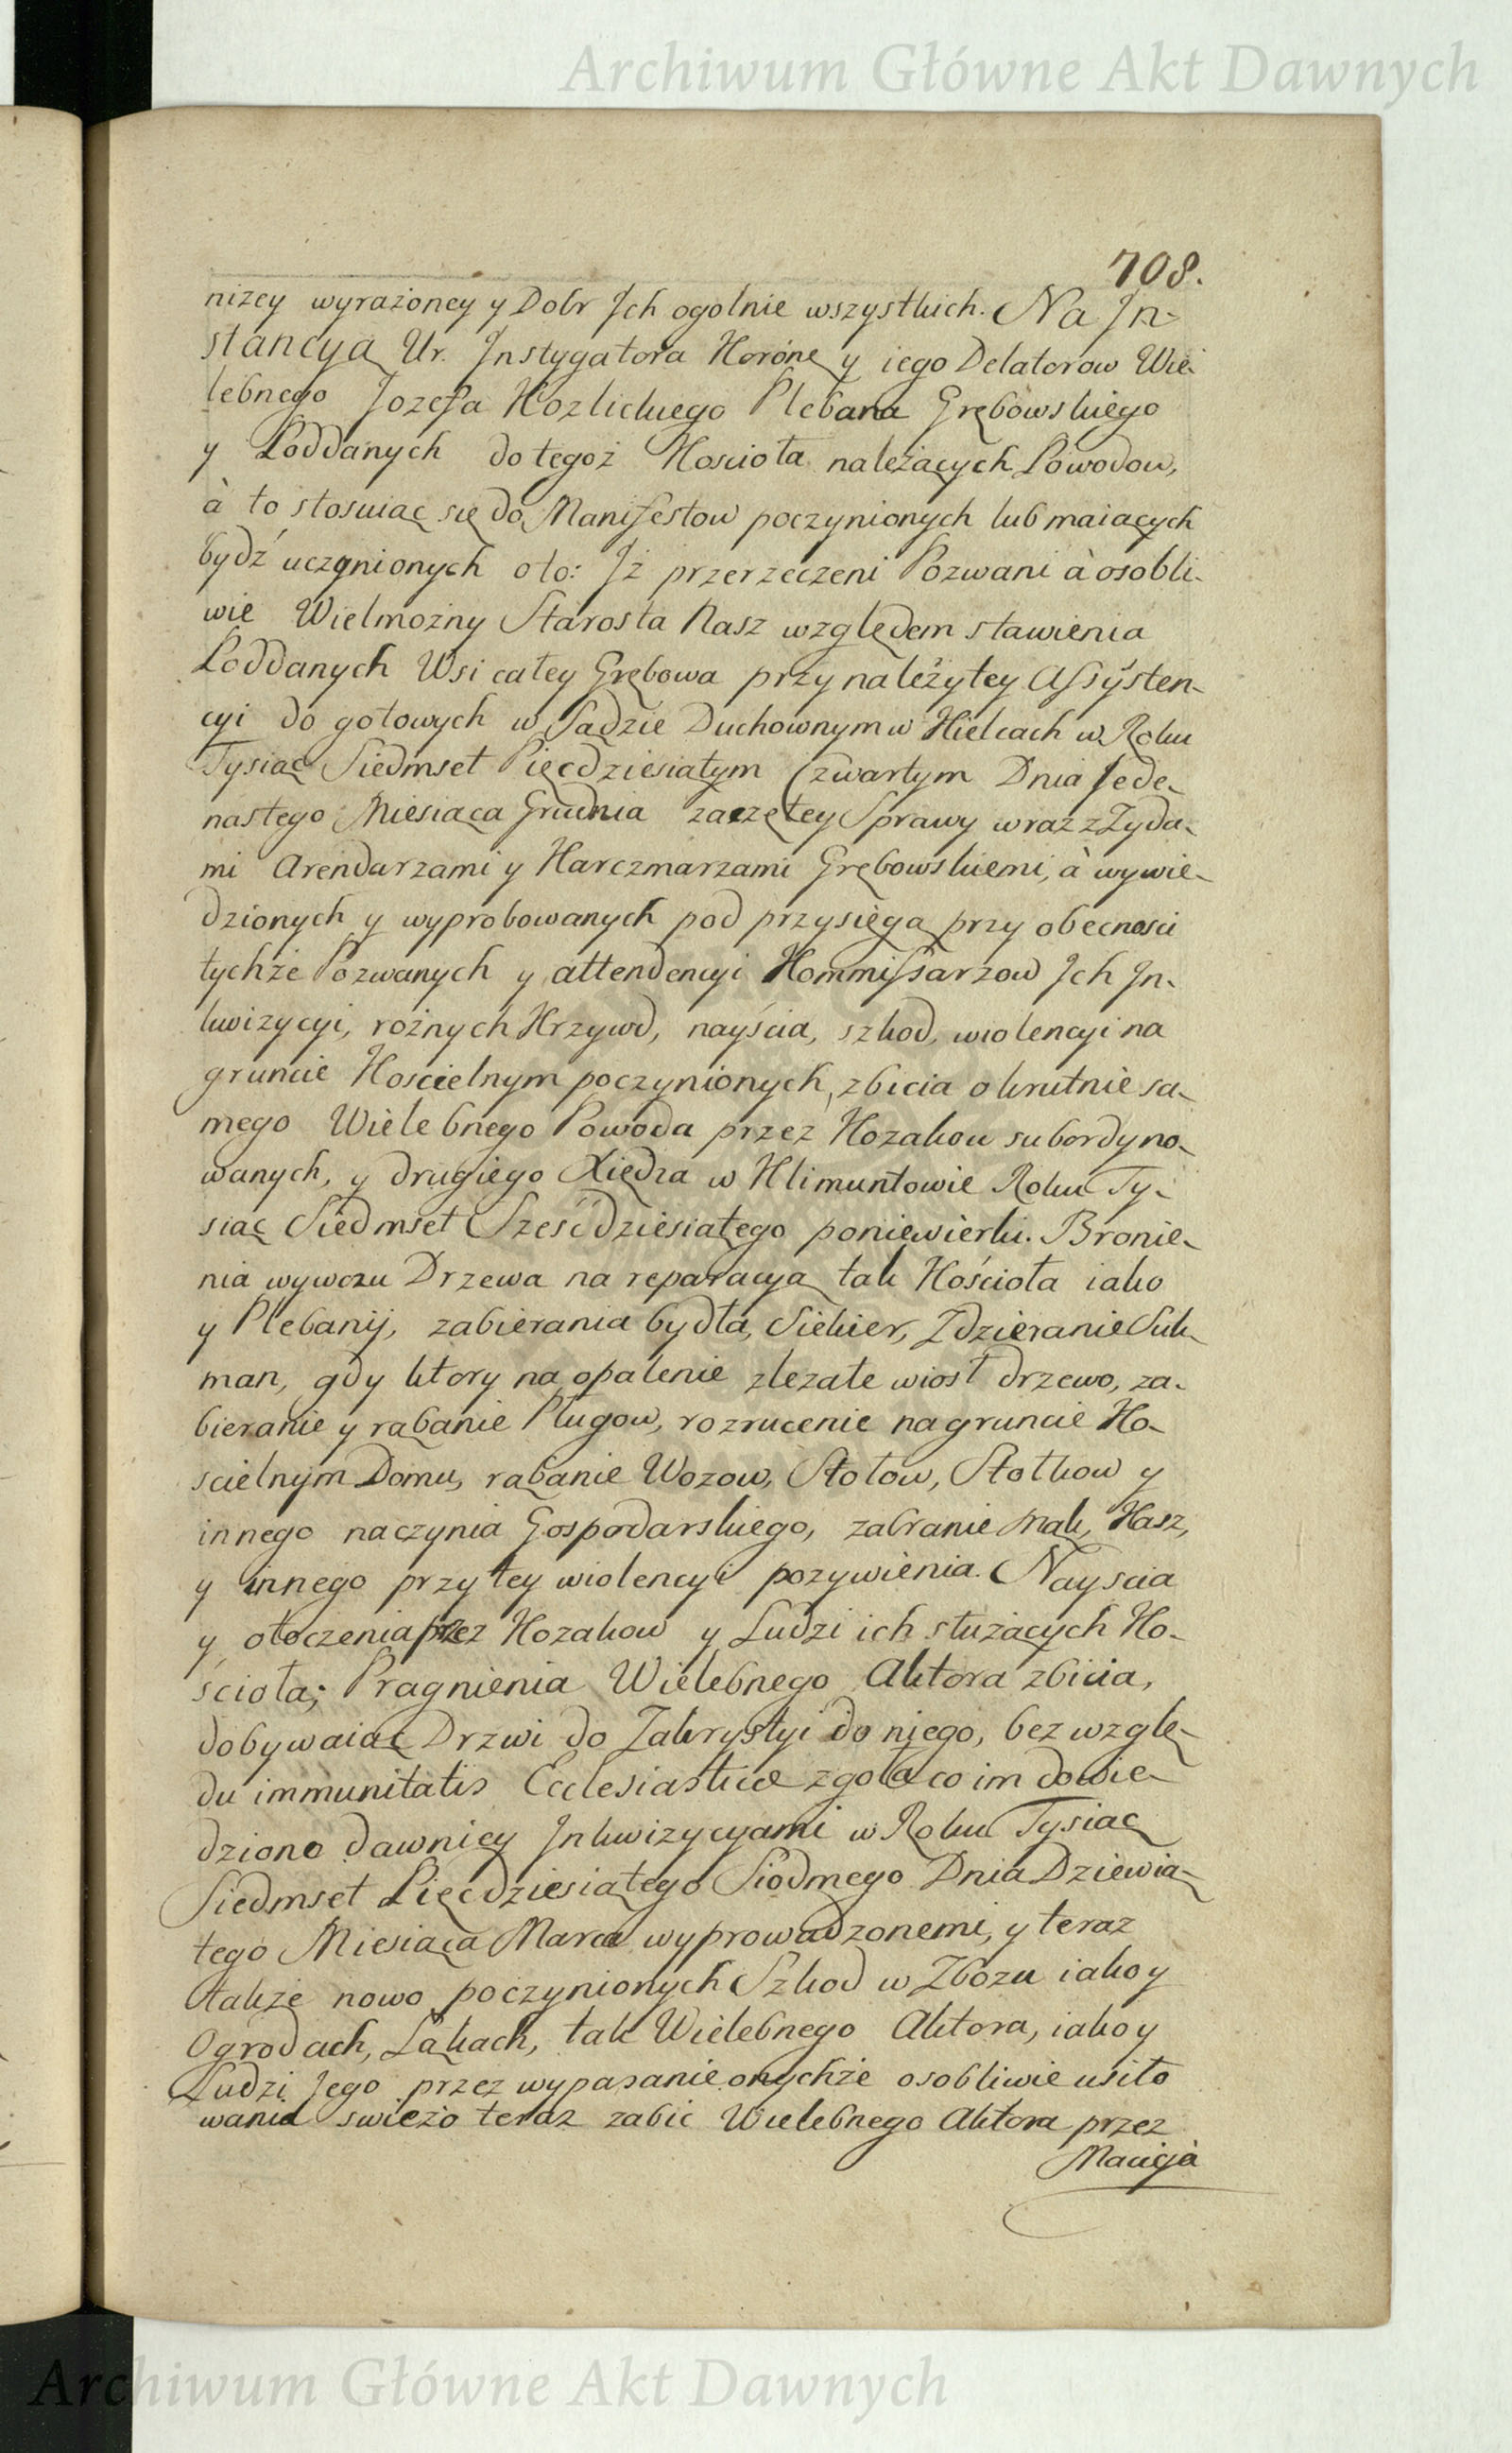 Archiwum Główne Akt Dawnych
708.
nizey wyrażoney y Dobr Jch ogolnie wszystkich. Na Jn-
stancyą Ur. Jnstygatora Koronę y iego Delatorow Wie-
lebnego Jozefa Kozlickiego Plebana Grębowskiego
y Poddanych do tegoż Kosciołá należących Powodow,
à to stosuiąc się do Manifestow poczynionych lub maiących
bydź uczynionych oto: Jż przerzeczeni Pozwani à osobli-
wie Wielmożny Starosta Nasz względem stawienia
Poddanych Wsi całey Grębowa przy należytey Assysten-
cyi do gotowych w Sądzie Duchownym w Kielcach w Roku
Tysiąc Siedmset Pięcdziesiątym Czwartym Dnia Jede-
nastego Miesiąca Grudnia zaczętey Sprawy wraz z Zyda-
mi Arendarzami y Karczmarzami Grębowskiemi, à wywie-
dzionych y wyprobowanych pod przysięgą przy obecnosci
tychże Pozwanych y attendencyi Kommissarzow Jch Jn-
kwizycyi, rożnych Krzywd, nayścia, szkod, wiolencyi na
gruncie Koscielnym poczynionych, zbicia okrutnie sa-
mego Wielebnego Powoda przez Kozakow subordyno-
wanych, y drugiego Xiędza w Klimuntowie Roku Ty-
siąc Siedmset Sześćdziesiątego poniewierki. Bronie-
nia wywozu Drzewa na reparacyą tak Kościoła iako
y Plebanij, zabierania bydła, Siekier, Zdzieranie Suk-
man, gdy ktory na opalenie zlezałe wiosł drzewo, za-
bieranie y rąbanie Pługow, rozrucenie na gruncie Ko-
scielnym Domu, rąbanie Wozow, Stołow, Stołkow y
innego naczynia Gospodarskiego, zabranie Mąk, Kasz,
y innego przy tey wiolencyi pozywienia. Nayscia
y otoczenia przez Kozakow y Ludzi ich służących Ko-
ścioła; Pragnienia Wielebnego Aktora zbicia,
dobywaiąc Drzwi do Zakrystyi do niego, bez wzglę-
du immunitatis Ecclesiasticæ zgoła co im dowie-
dziono dawniey Jnkwizycyami w Roku Tysiąc
Siedmset Pięcdziesiątego Siodmego Dnia Dziewią-
tego Miesiąca Marca wyprowadzonemi, y teraz
także nowo poczynionych Szkod w Zbożu iako y
Ogrodach, Łąkach, tak Wielebnego Aktora, iako y
Ludzi Jego przez wypasanie onychże osobliwie usiło
wania swieżo teraz zabic Wielebnego Aktora przez
Macieja
Archiwum Główne Akt Dawnych